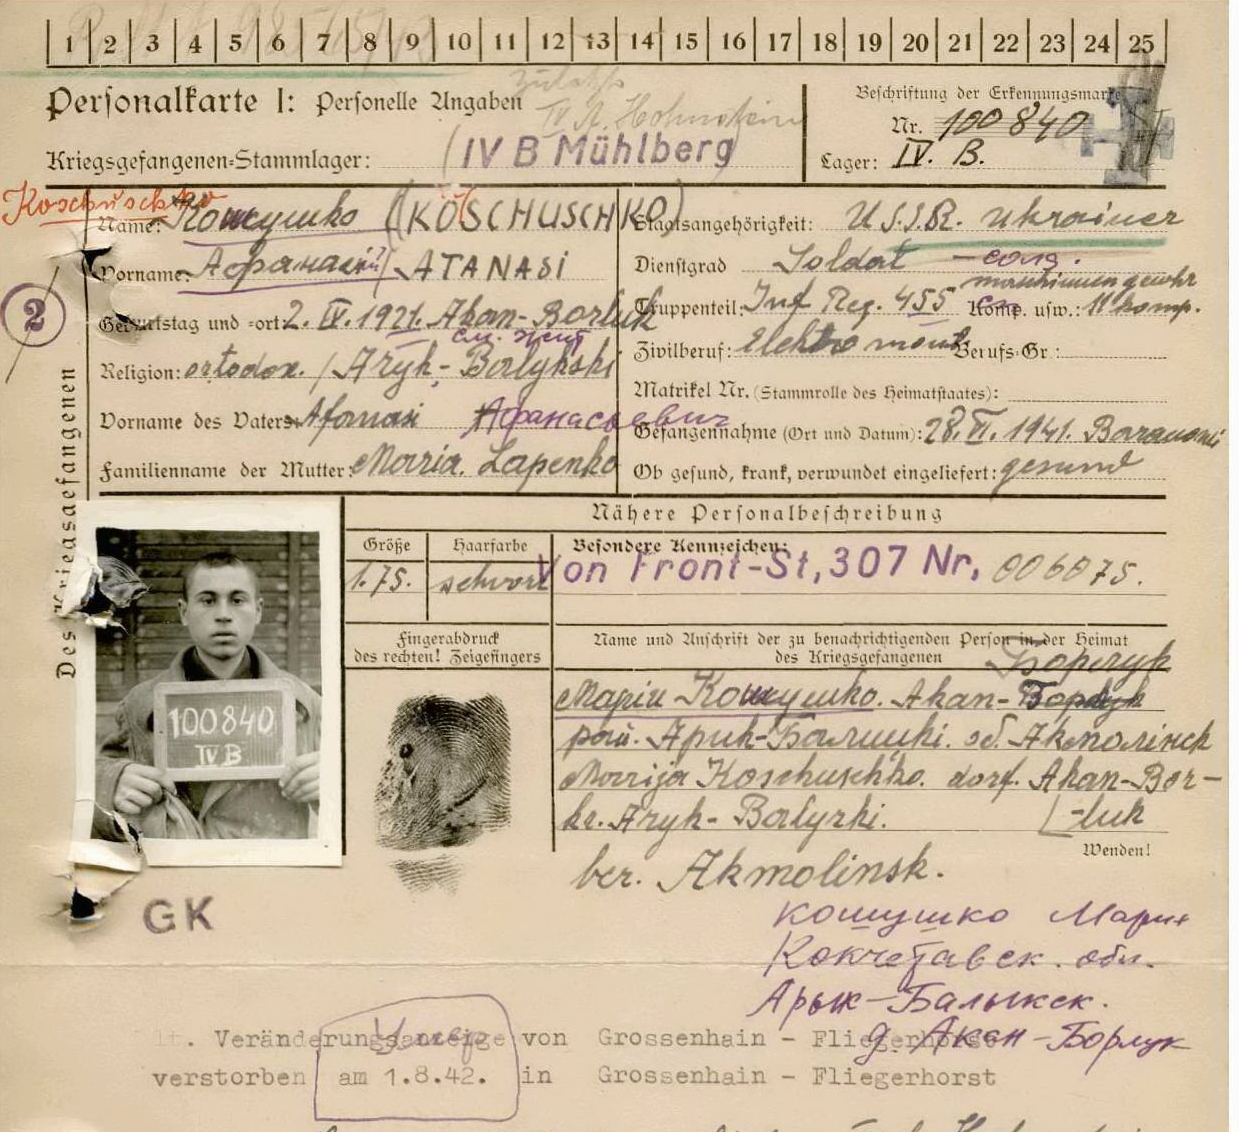 1 2 3 4 5 6 7 8 9 10 11 12 13 14 15 16 17 18 19 20 21 22 23 24 25
Personalkarte I: Personelle Angaben
Beschriftung der Erkennungsmarke
Nr. 100840
Kriegsgefangenen-Stammlager: IV B Mühlberg
Lager: IV. B.
Koschuschko
Name: Кошушко (KOSCHUSCHKO)
Staatsangehörigkeit: U.S.S.R. Ukrainer
Vorname: Афанасий / ATANASI
Dienstgrad Soldat - солд.
maschinengewehr
2
Geburtstag und -ort: 2. IV. 1921. Akan-Borluk
Truppenteil: Inf Reg. 455 Komp. usw.: 11 komp.
Religion: ortodox. / Aryk-Balykski
Zivilberuf: Elektromont Berufs-Gr.:
Matrikel Nr. (Stammrolle des Heimatstaates):
Vorname des Vaters: Afonasi Афанасьевич
Gefangennahme (Ort und Datum): 28. VI. 1941. Baranowi
Familienname der Mutter: Maria. Lapenko
Ob gesund, krank, verwundet eingeliefert: gesund
Des Kriegsgefangenen
Nähere Personalbeschreibung
Größe Haarfarbe Besondere Kennzeichen:
1.75. schwarz Von Front-St, 307 Nr, 006075.
Fingerabdruck
des rechten! Zeigefingers
Name und Anschrift der zu benachrichtigenden Person in der Heimat
des Kriegsgefangenen
Борлук
Марии Кошушко. Akan-
рай. Арик-Балицкі. об. Акмолінск
Marija Koschuschko. dorf. Akan-Bor-
kr. Aryk-Balyzki. -luk
100840
IV B
Wenden!
ber. Akmolinsk.
GK
Кошушко Мария
Кокчетавск. обл.
Арык-Балыкск.
д. Акан-Борлук
lt. Veränderungsanzeige von Grossenhain - Fliegerhorst
Умер
verstorben am 1.8.42. in Grossenhain - Fliegerhorst